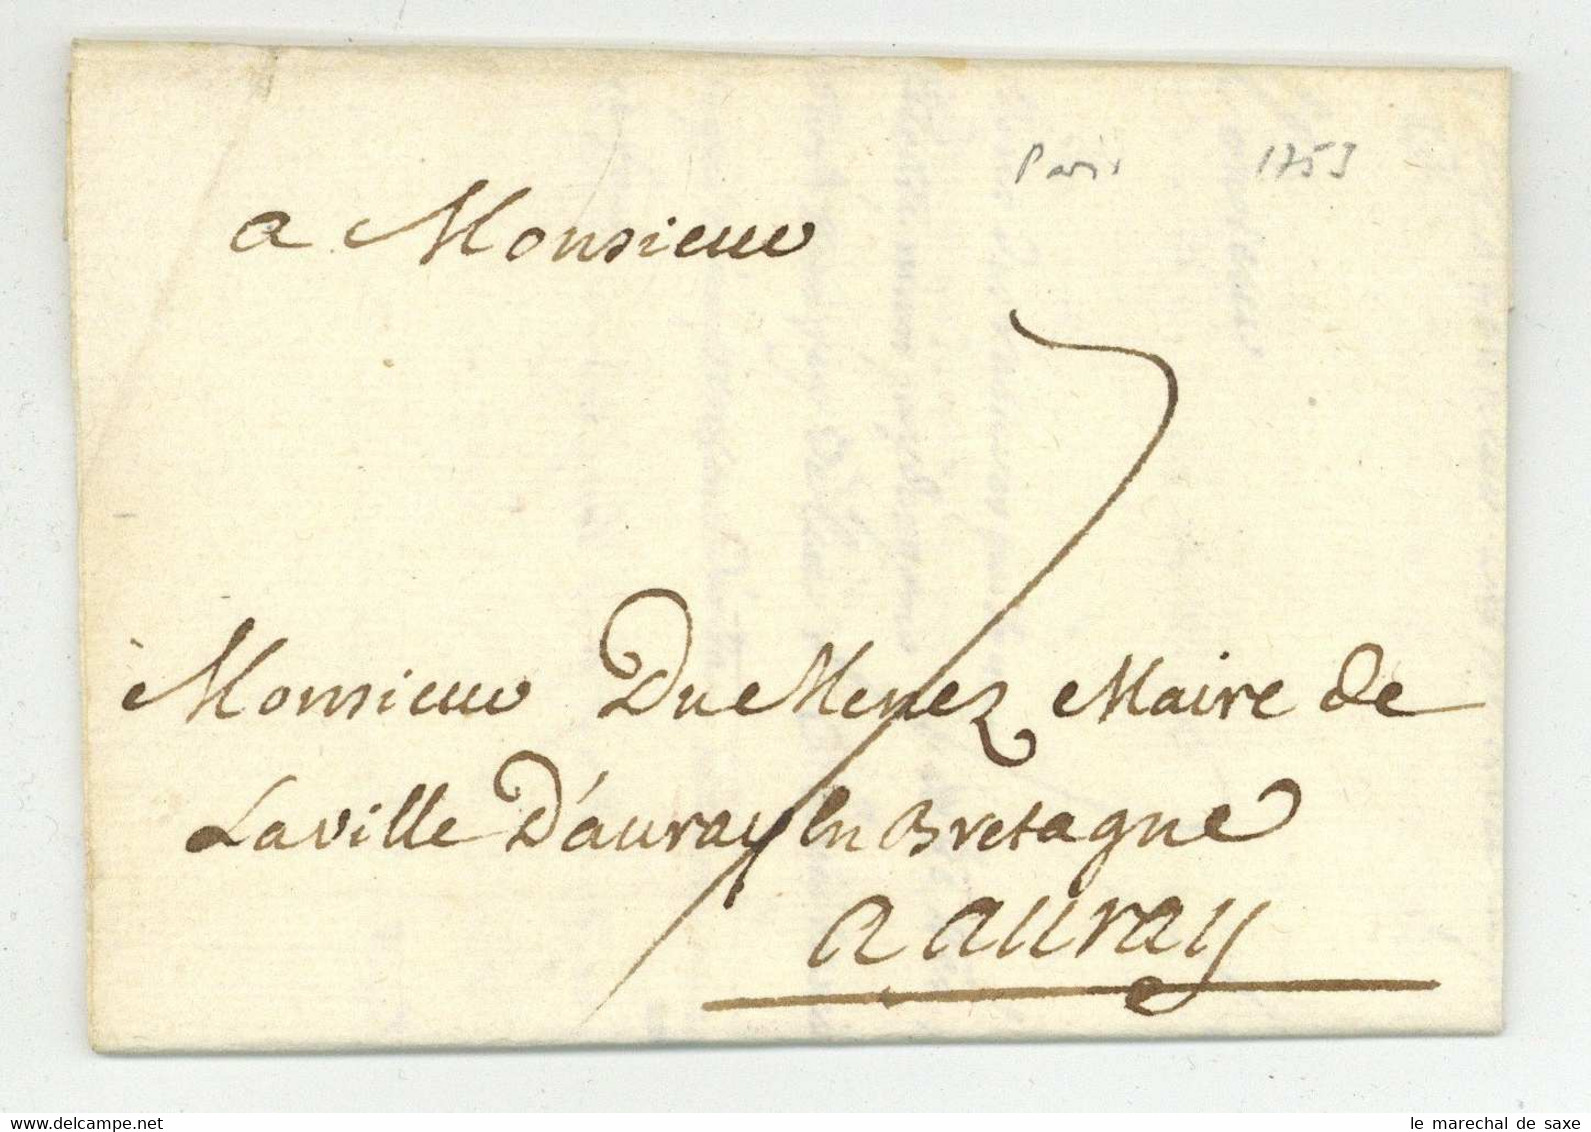 Paris 1753
a Monsieur
Monsieur Du Menez Maire de
La ville D'auray en Bretagne
a auray
delcampe.net
le marechal de saxe